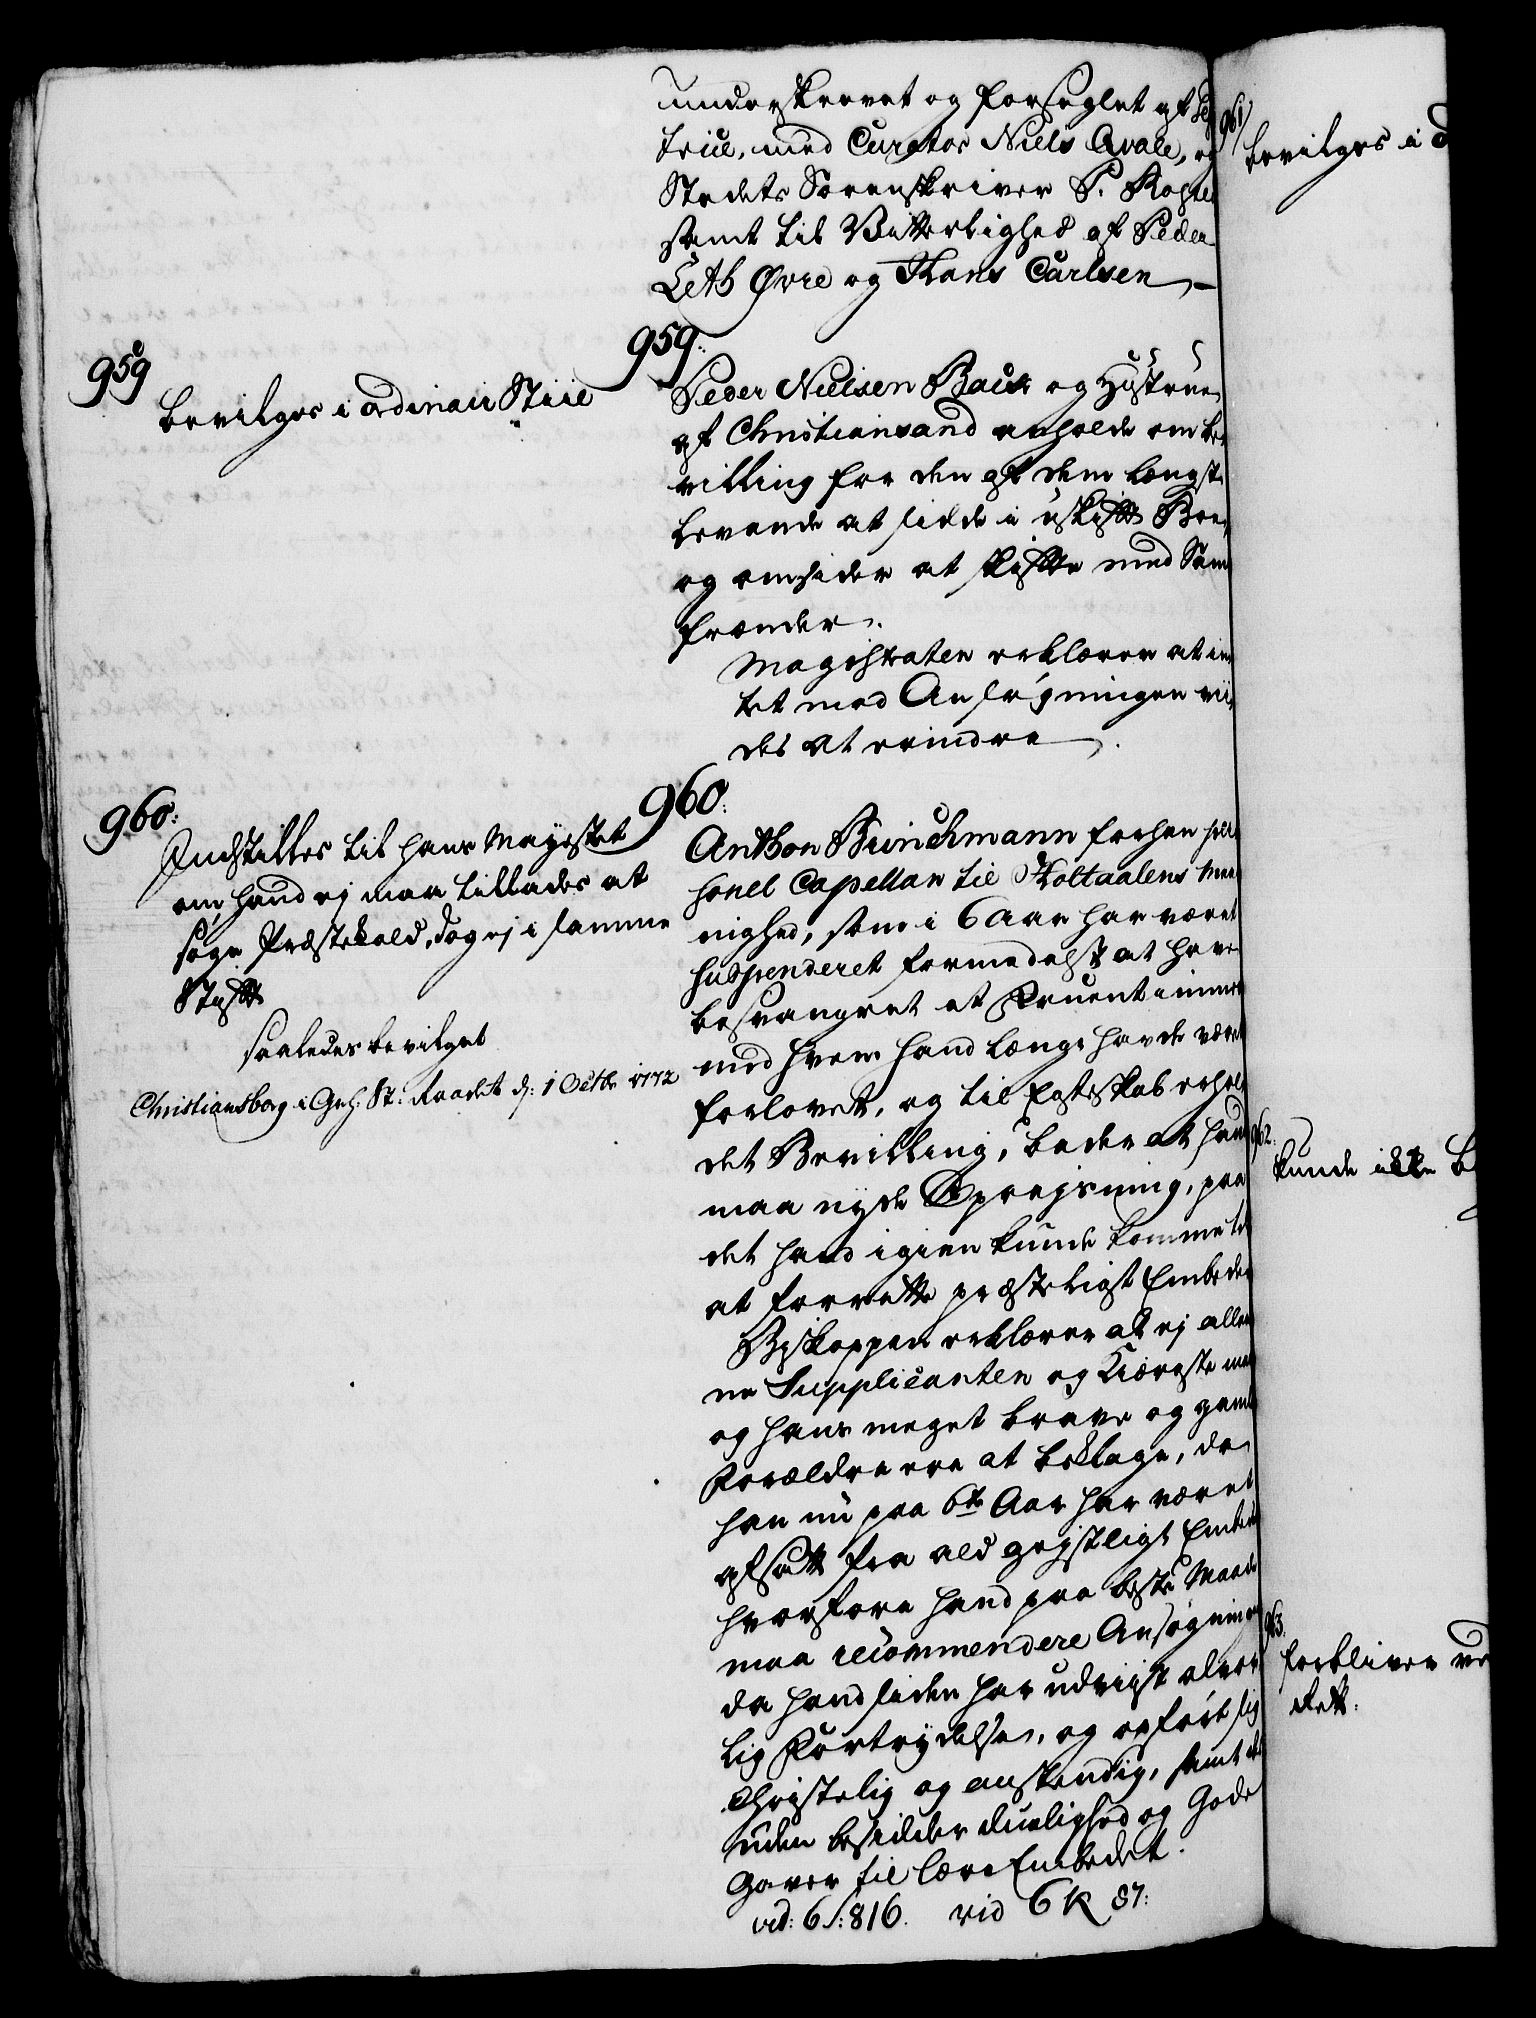 underskrevet og forseglet af
trice, med Curator Niels Qvale, og
Stedets Sorenskriver P.
samt til Vitterlighed af Peder
Leth Øvre og Hans Carlsen
959
bevilges i ordinair Stiil
959.
Peder Nielsen Bach og Hustrue
af Christiansand anholde om be
villing for den af dem længst
levende at sidde i uskift Boe,
og omsider at skifte med Sam
frænder.
Magistraten erklærer at in
tet mod Ansøgningen vii
des at erindre
960:
Indstilles til hans Mayestet
om hand ej maa tillades at
søge Præstekald, dog ej i samme
Stift
saaledes bevilget
Christiansborg i Geh: St: Raadet d: 1 Octbr 1772
960.
Anthon Brinchmann forhen
sonel Capellan til Holtaalens Mee
nighed, som i 6 Aar har været
suspenderet formedelst at have
besvangret et Fruentimmer
med hvem hand længe havde været
forlovet, og til Egteskab erhol
det Bevilling, beder at hand
maa nyde Oprejsning, paa
det hand igien kunde komme til
at forrette præsteligt Embede
Biskoppen erklærer at ej alle
ne Supplicanten og Kiæreste men
og hans meget brave og gamle
Forældre ere at beklage, da
han nu paa 6te Aar har været
afsatt fra ald geistligt Embede
hvorfore hand paa beste Maade
maa recommendere Ansøgningen
da hand siden har udviist alvor
lig Fortrydelse, og opført sig
Christelig og anstendig, samt des
uden besidder duelighed og Gode
Gaver til lære Embedet.
vid: 6 S: 816. vid 6 K 87:
961
bevilges i
962.
kunde ikke
963.
forbliver ved